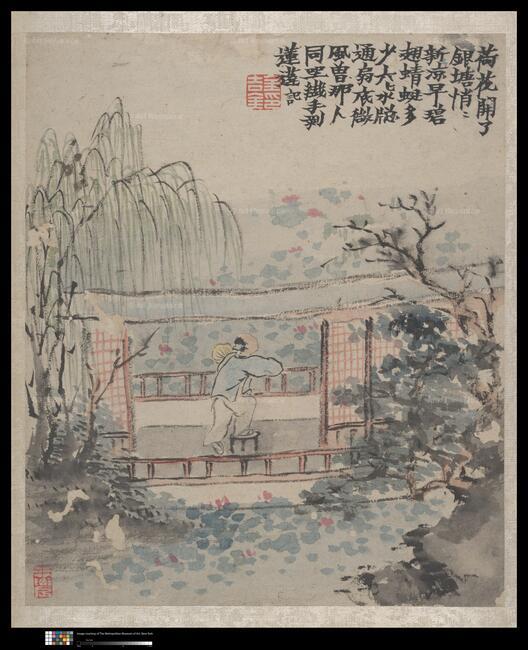 荷花開了
銀塘悄〻
新凉早碧
翅蜻蜓多
少六〻水窗
通扇底微
風曾那人
同坐纖手剥
蓮蓬 記
Image courtesy of The Metropolitan Museum of Art, New York